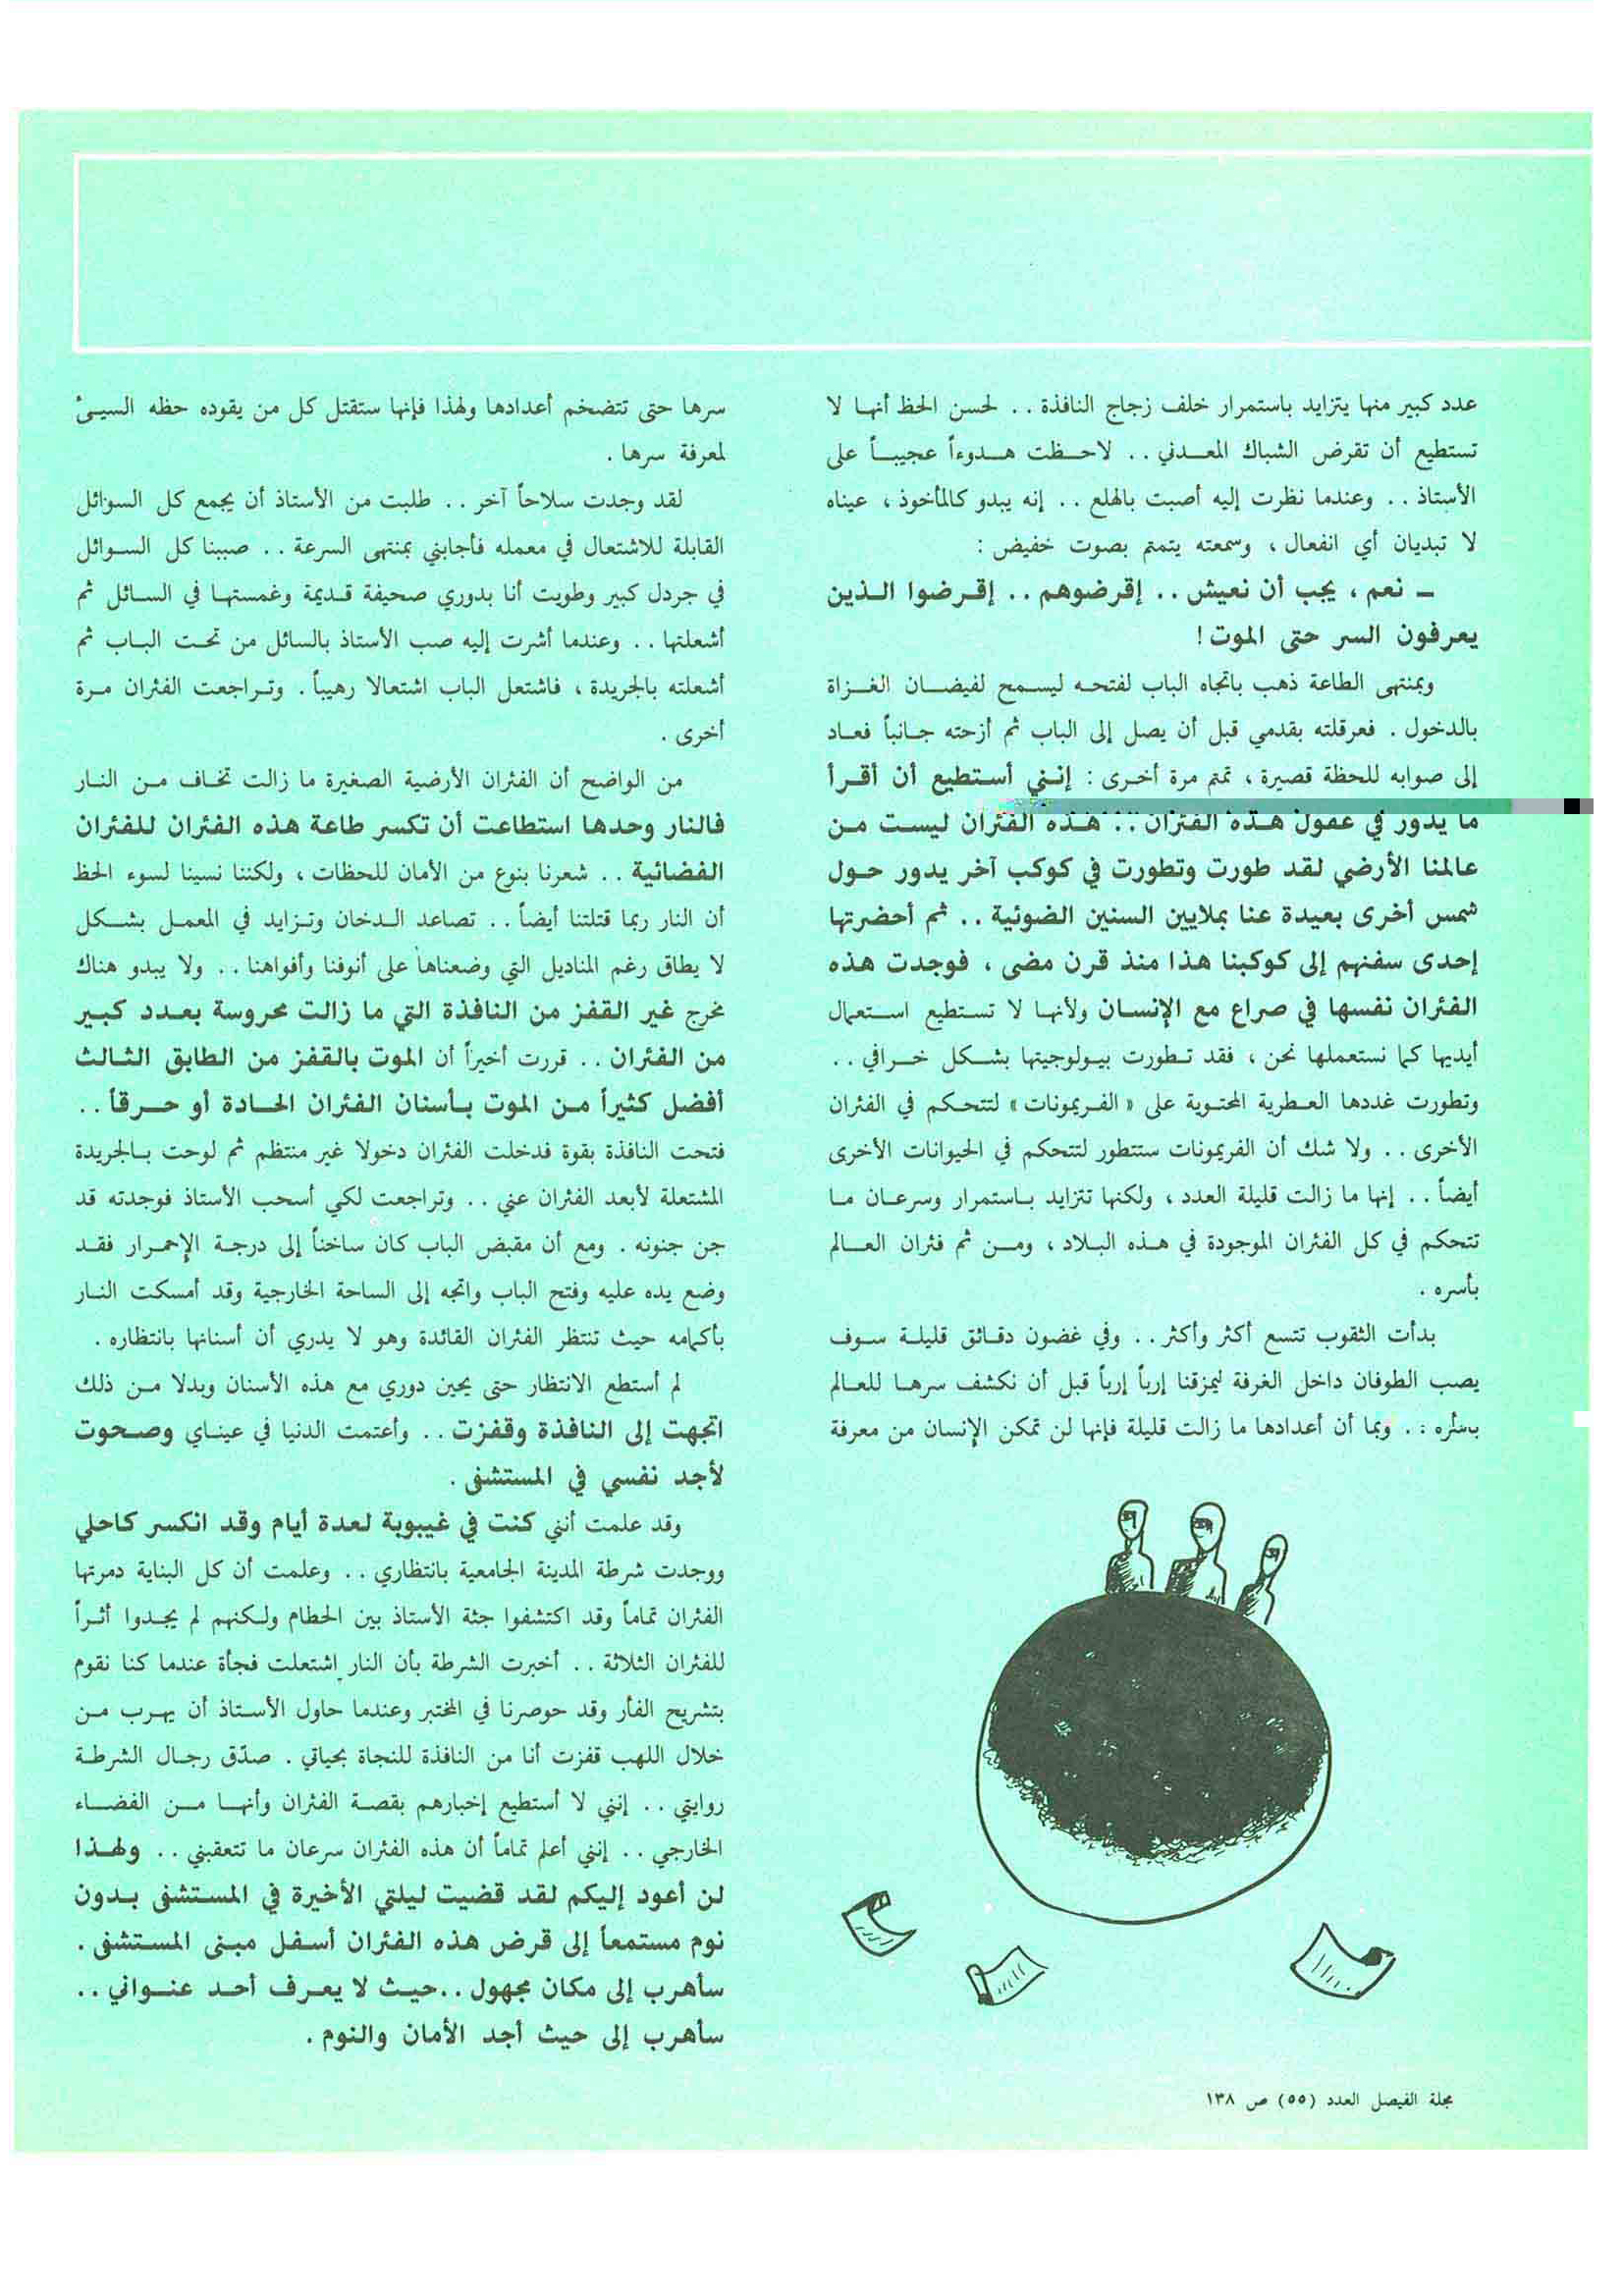 عدد كبير منها يتزايد باستمرار خلف زجاج النافذة . . لحسن الحظ أنها لا
تستطيع أن تقرض الشباك المعدني . . لاحظت هدوءاً عجيباً على
الأستاذ . . وعندما نظرت إليه أصبت بالهلع . . إنه يبدو كالمأخوذ ، عيناه
لا تبديان أي انفعال ، وسمعته يتمتم بصوت خفيض :
ـ نعم ، يجب أن نعيش . . إقرضوهم . . إقرضوا الذين
يعرفون السر حتى الموت !
وبمنتهى الطاعة ذهب باتجاه الباب لفتحه ليسمح لفيضان الغزاة
بالدخول . فعرقلته بقدمي قبل أن يصل إلى الباب ثم أزحته جانباً فعاد
إلى صوابه للحظة قصيرة ، تمتم مرة أخرى : إنني أستطيع أن أقرأ
ما يدور في عقول هذه الفئران . . هذه الفئران ليست من
عالمنا الأرضي لقد طورت وتطورت في كوكب آخر يدور حول
شمس أخرى بعيدة عنا بملايين السنين الضوئية . . ثم أحضرتها
إحدى سفنهم إلى كوكبنا هذا منذ قرن مضى ، فوجدت هذه
الفئران نفسها في صراع مع الإنسان ولأنها لا تستطيع استعمال
أيديها كما نستعملها نحن ، فقد تطورت بيولوجيتها بشكل خرافي . .
وتطورت غددها العطرية المحتوية على « الفريمونات » لتتحكم في الفئران
الأخرى . . ولا شك أن الفريمونات ستتطور لتتحكم في الحيوانات الأخرى
أيضاً . . إنها ما زالت قليلة العدد ، ولكنها تتزايد باستمرار وسرعان ما
تتحكم في كل الفئران الموجودة في هذه البلاد ، ومن ثم فئران العالم
بأسره .
بدأت الثقوب تتسع أكثر وأكثر . . وفي غضون دقائق قليلة سوف
يصب الطوفان داخل الغرفة ليمزقنا إرباً إرباً قبل أن نكشف سرها للعالم
بأسره . . وبما أن أعدادها ما زالت قليلة فإنها لن تمكن الإنسان من معرفة
سرها حتى تتضخم أعدادها ولهذا فإنها ستقتل كل من يقوده حظه السيئ
لمعرفة سرها .
لقد وجدت سلاحاً آخر . . طلبت من الأستاذ أن يجمع كل السوائل
القابلة للاشتعال في معمله فأجابني بمنتهى السرعة . . صببنا كل السوائل
في جردل كبير وطويت أنا بدوري صحيفة قديمة وغمستها في السائل ثم
أشعلتها . . وعندما أشرت إليه صب الأستاذ بالسائل من تحت الباب ثم
أشعلته بالجريدة ، فاشتعل الباب اشتعالا رهيباً . وتراجعت الفئران مرة
أخرى .
من الواضح أن الفئران الأرضية الصغيرة ما زالت تخاف من النار
فالنار وحدها استطاعت أن تكسر طاعة هذه الفئران للفئران
الفضائية . . شعرنا بنوع من الأمان للحظات ، ولكننا نسينا لسوء الحظ
أن النار ربما قتلتنا أيضاً . . تصاعد الدخان وتزايد في المعمل بشكل
لا يطاق رغم المناديل التي وضعناها على أنوفنا وأفواهنا . . ولا يبدو هناك
مخرج غير القفز من النافذة التي ما زالت محروسة بعدد كبير
من الفئران . . قررت أخيراً أن الموت بالقفز من الطابق الثالث
أفضل كثيراً من الموت بأسنان الفئران الحادة أو حرقاً . .
فتحت النافذة بقوة فدخلت الفئران دخولا غير منتظم ثم لوحت بالجريدة
المشتعلة لأبعد الفئران عني . . وتراجعت لكي أسحب الأستاذ فوجدته قد
جن جنونه . ومع أن مقبض الباب كان ساخناً إلى درجة الإحمرار فقد
وضع يده عليه وفتح الباب واتجه إلى الساحة الخارجية وقد أمسكت النار
بأكمامه حيث تنتظر الفئران القائدة وهو لا يدري أن أسنانها بانتظاره .
لم أستطع الانتظار حتى يحين دوري مع هذه الأسنان وبدلا من ذلك
اتجهت إلى النافذة وقفزت . . وأعتمت الدنيا في عيناي وصحوت
لأجد نفسي في المستشفى .
وقد علمت أنني كنت في غيبوبة لعدة أيام وقد انكسر كاحلي
ووجدت شرطة المدينة الجامعية بانتظاري . . وعلمت أن كل البناية دمرتها
الفئران تماماً وقد اكتشفوا جثة الأستاذ بين الحطام ولكنهم لم يجدوا أثراً
للفئران الثلاثة . . أخبرت الشرطة بأن النار اشتعلت فجأة عندما كنا نقوم
بتشريح الفأر وقد حوصرنا في المختبر وعندما حاول الأستاذ أن يهرب من
خلال اللهب قفزت أنا من النافذة للنجاة بحياتي . صدّق رجال الشرطة
روايتي . . إنني لا أستطيع إخبارهم بقصة الفئران وأنها من الفضاء
الخارجي . . إنني أعلم تماماً أن هذه الفئران سرعان ما تتعقبني . . ولهذا
لن أعود إليكم لقد قضيت ليلتي الأخيرة في المستشفى بدون
نوم مستمعاً إلى قرض هذه الفئران أسفل مبنى المستشفى .
سأهرب إلى مكان مجهول . . حيث لا يعرف أحد عنواني . .
سأهرب إلى حيث أجد الأمان والنوم .
مجلة الفيصل العدد (٥٥) ص ١٣٨